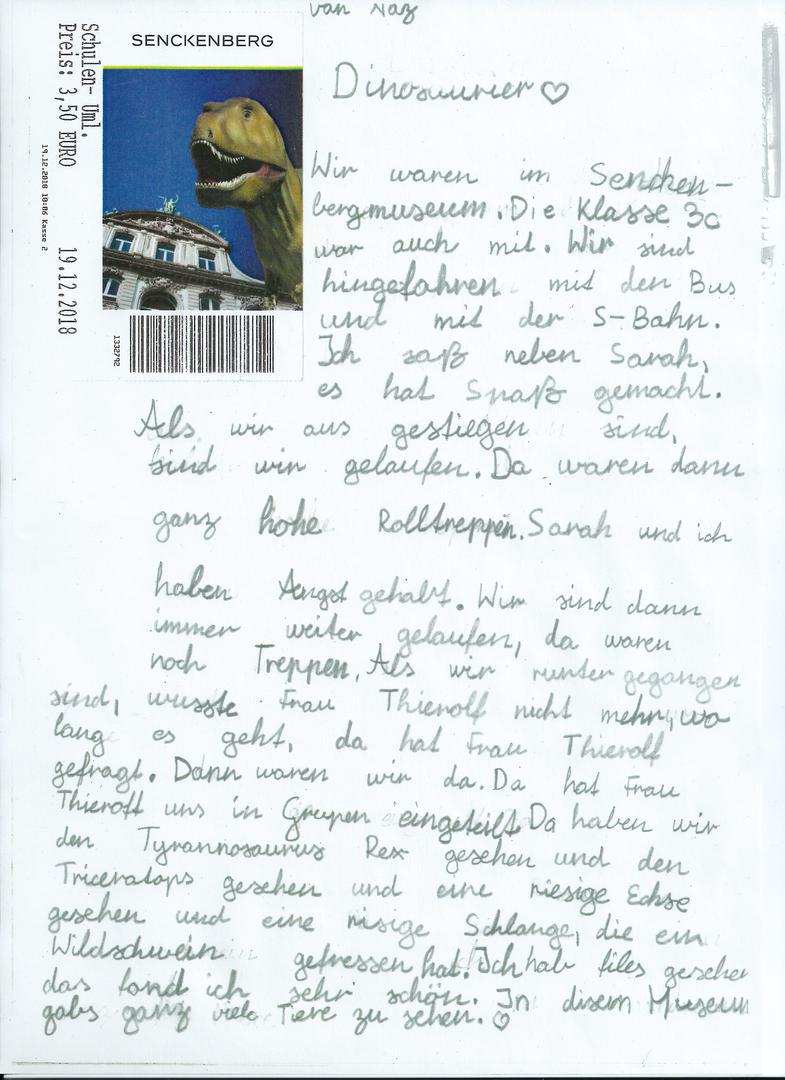 van Naz
SENCKENBERG
Schulen- Uml.
Preis: 3,50 EURO
19.12.2018
19.12.2018 10:06 Kasse 2
1332792
Dinosaurier♡
Wir waren im Sencken-
bergmuseum. Die Klasse 3c
war auch mit. Wir sind
hingefahren mit den Bus
und mit der S-Bahn.
Ich saß neben Sarah,
es hat Spaß gemacht.
Als wir aus gestiegen sind,
sind wir gelaufen. Da waren dann
ganz hohe Rolltreppen. Sarah und ich
haben Angst gehabt. Wir sind dann
immer weiter gelaufen, da waren
noch Treppen. Als wir runter gegangen
sind, wusste Frau Thierolf nicht mehr, wo
lang es geht, da hat Frau Thierolf
gefragt. Dann waren wir da. Da hat Frau
Thierolf uns in Grupen eingeteilt. Da haben wir
den Tyrannosaurus Rex gesehen und den
Triceratops gesehen und eine riesige Echse
gesehen und eine risige Schlange, die ein
Wildschwein gefressen hat. Ich hab files gesehen
das fand ich sehr schön. In disem Museum
gabs ganz viele Tiere zu sehen. ♡